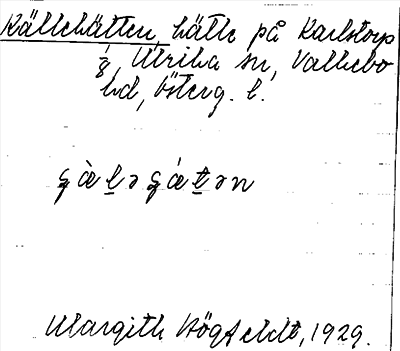 Källekätten, kätte på Karlstorp
⅛, Ulrika sn, Valkebo
hd, Österg. l.
ɕæ̀l̲əɕǽt̲ən
Margith Högfeldt, 1929.